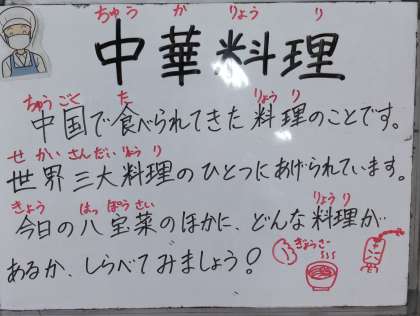 ちゅう か りょう り
中華料理
ちゅうごく た りょう り
中国で食べられてきた料理のことです。
せ かい さんだい りょう り
世界三大料理のひとつにあげられています。
きょう はっ ぽう さい りょう り
今日の八宝菜のほかに、どんな料理が
あるか、しらべてみましょう!
ぎょうざ